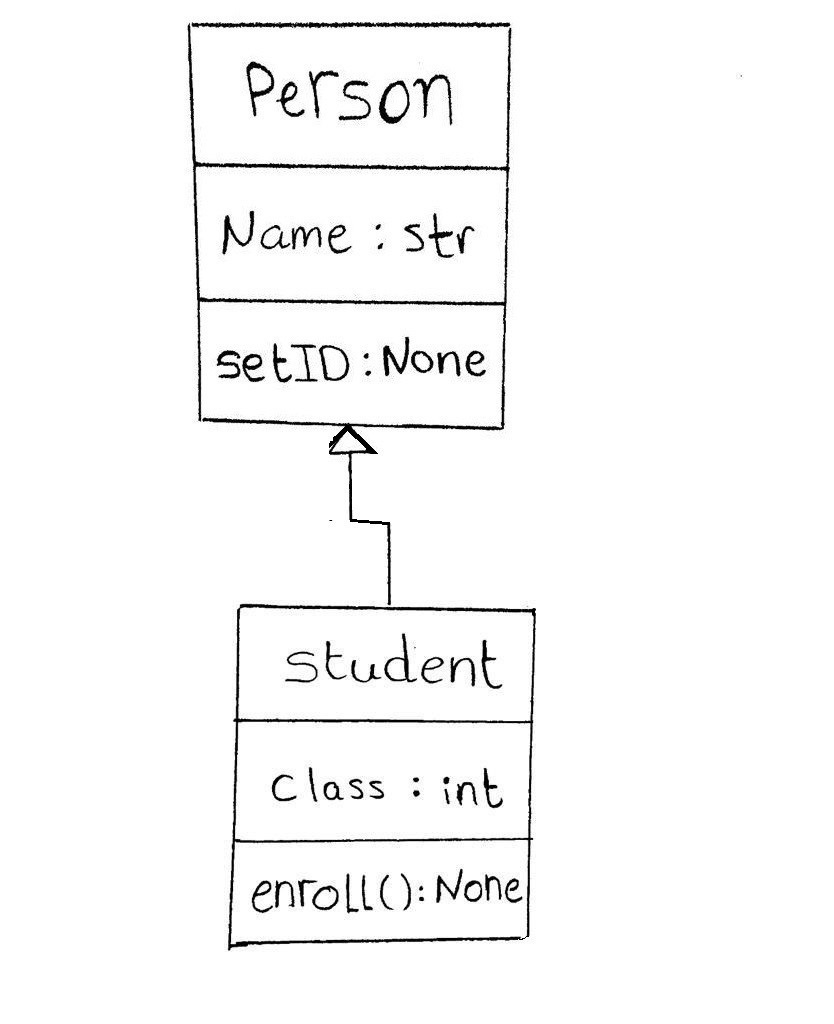 Person
Name : str
setID : None
student
Class : int
enroll() : None